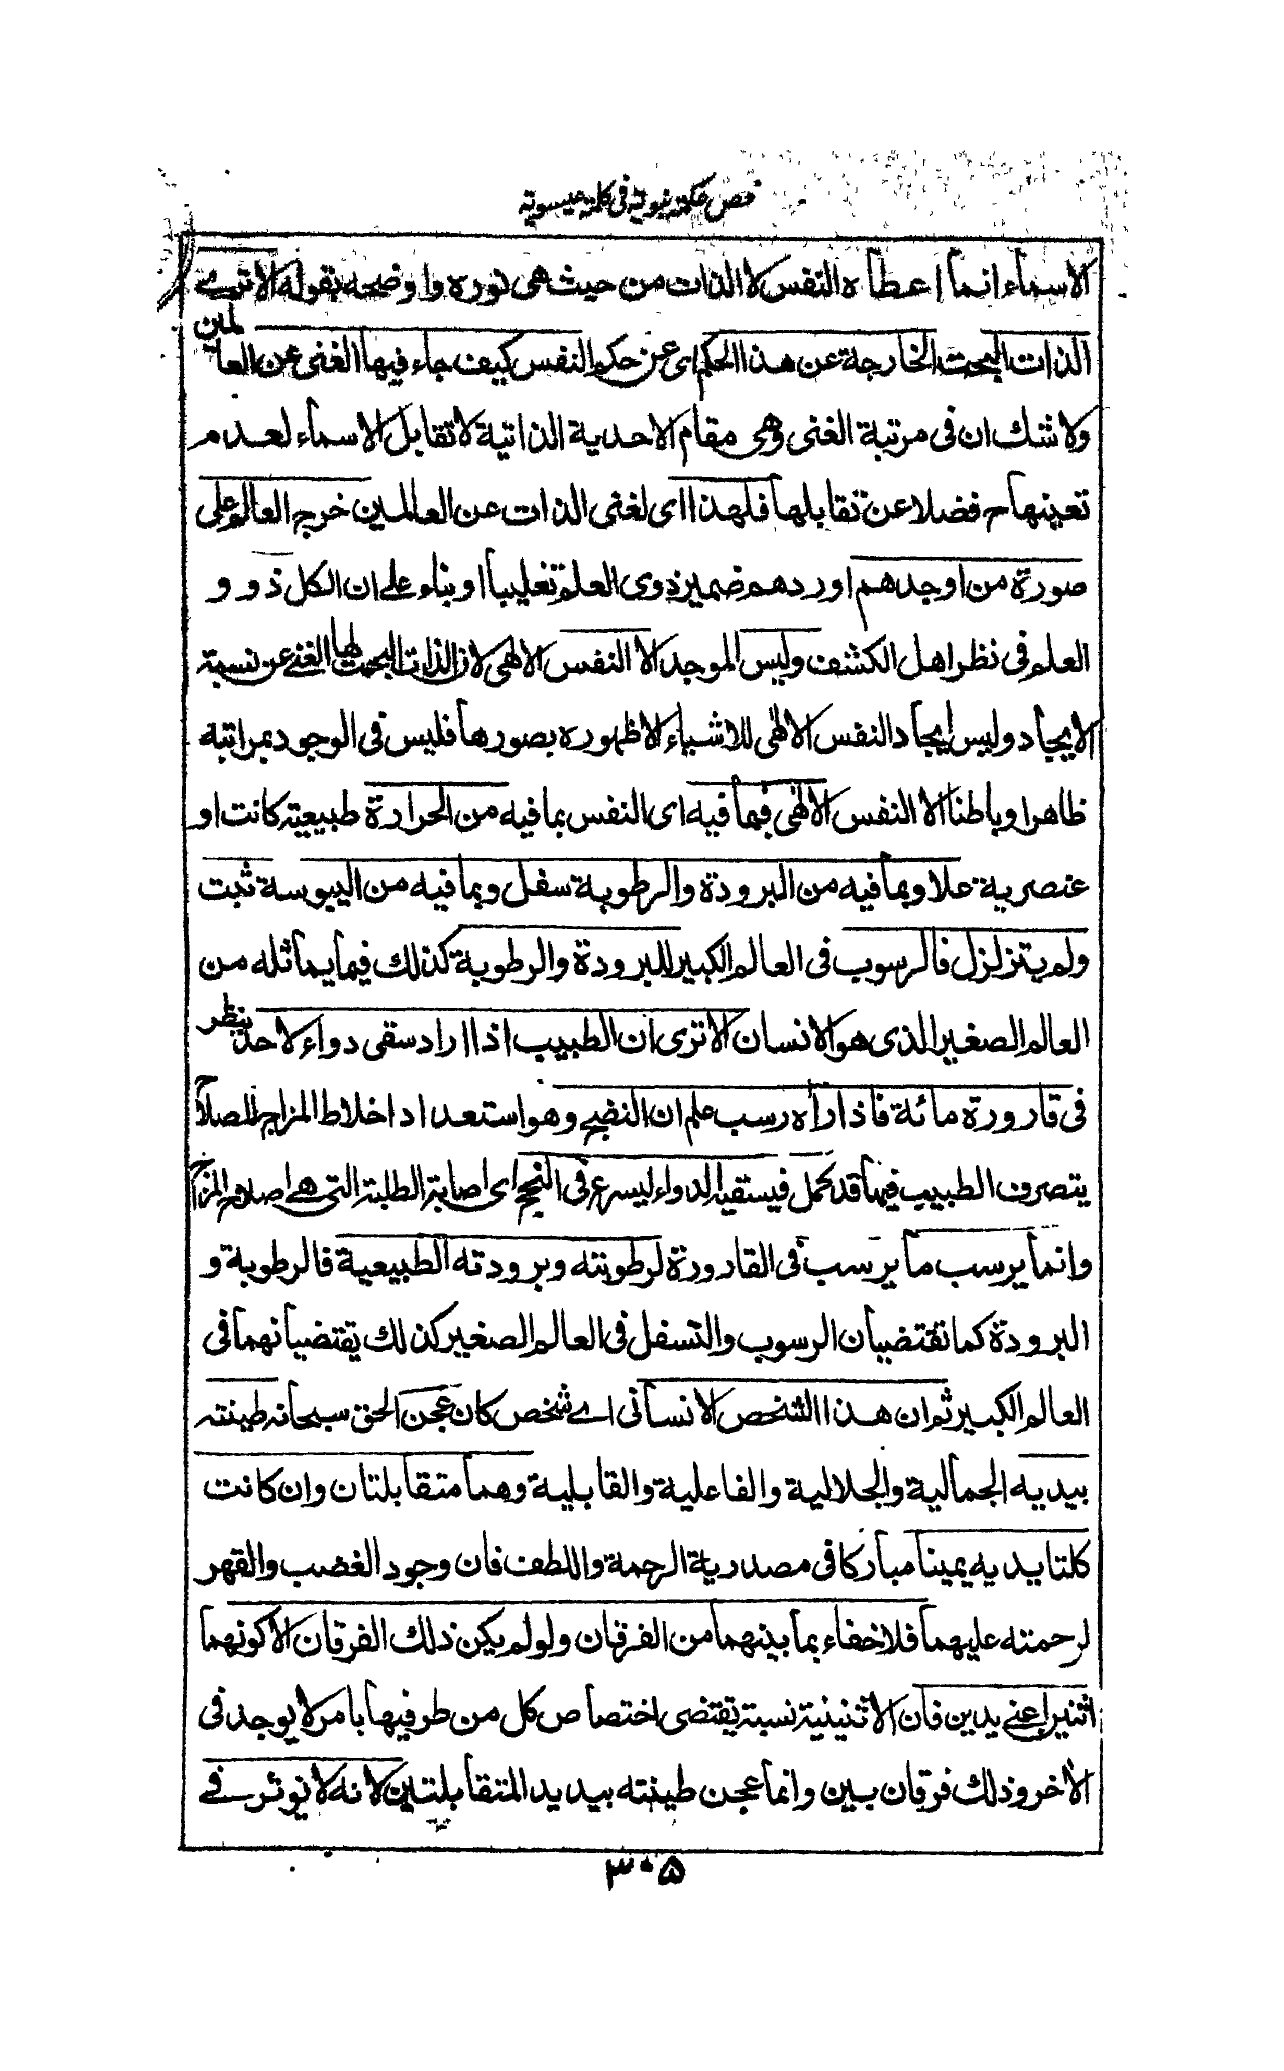 فص حكمة نبوية فى كلمة عيسوية
الاسماء انما اعطاه النفس لا الذات من حيث هى نوره واوضحه بقوله الا ترى
الذات البحت الخارجة عن هذا الحكم اى عن حكم النفس كيف جاء فيها الغنى عن العالمين
ولا شك ان فى مرتبة الغنى وهى مقام الاحدية الذاتية لا تقابل الاسماء لعدم
تعينها ح فضلا عن تقابلها فلهذا اى لغنى الذات عن العالمين خرج العالم على
صورة من اوجدهم اوردهم ضمير ذوى العلم تغليبا او بناء على ان الكل ذوو
العلم فى نظر اهل الكشف وليس الموجد الا النفس الالهى لان الذات البحت لها الغنى عن نسبة
الايجاد وليس ايجاد النفس الالهى للاشياء الا ظهوره بصورها فليس فى الوجود بمراتبة
ظاهرا وباطنا الا النفس الالهى فبما فيه اى النفس بما فيه من الحرارة طبيعية كانت او
عنصرية علا وبما فيه من البرودة والرطوبة سفل وبما فيه من اليبوسة ثبت
ولم يتزلزل فالرسوب فى العالم الكبير للبرودة والرطوبة كذلك فيما يماثله من
العالم الصغير الذى هو الانسان الا ترى ان الطبيب اذا اراد سقى دواء لاحد ينظر
فى قارورة مائة فاذا راه رسب علم ان النضج وهو استعداد اخلاط المزاج للصلاح
يتصرف الطبيب فيها قد كمل فيستقيه الدواء ليسرع فى النجح اى اصابة الطلبة التى هى اصلاح المزاج
وانما يرسب ما يرسب فى القارورة لرطوبته وبرودته الطبيعية فالرطوبة و
البرودة كما تقتضيان الرسوب والتسفل فى العالم الصغير كذلك يقتضيانهما فى
العالم الكبير ثم ان هذا الشخص الانسانى اى شخص كان عجن الحق سبحانه طينته
بيديه الجمالية والجلالية والفاعلية والقابلية وهما متقابلتان وان كانت
كلتا يديه يمينا مباركا فى مصدرية الرحمة واللطف فان وجود الغضب والقهر
لرحمته عليهما فلا خفاء بما بينهما من الفرقان ولو لم يكن ذلك الفرقان الا كونهما
اثنين اعنى يدين فان الاثنينية نسبة يقتضى اختصاص كل من طرفيها بامر لا يوجد فى
الاخر وذلك فرقان بين وانما عجن طينته بيديه المتقابلتين لانه لا يؤثر فى
٣٠٥